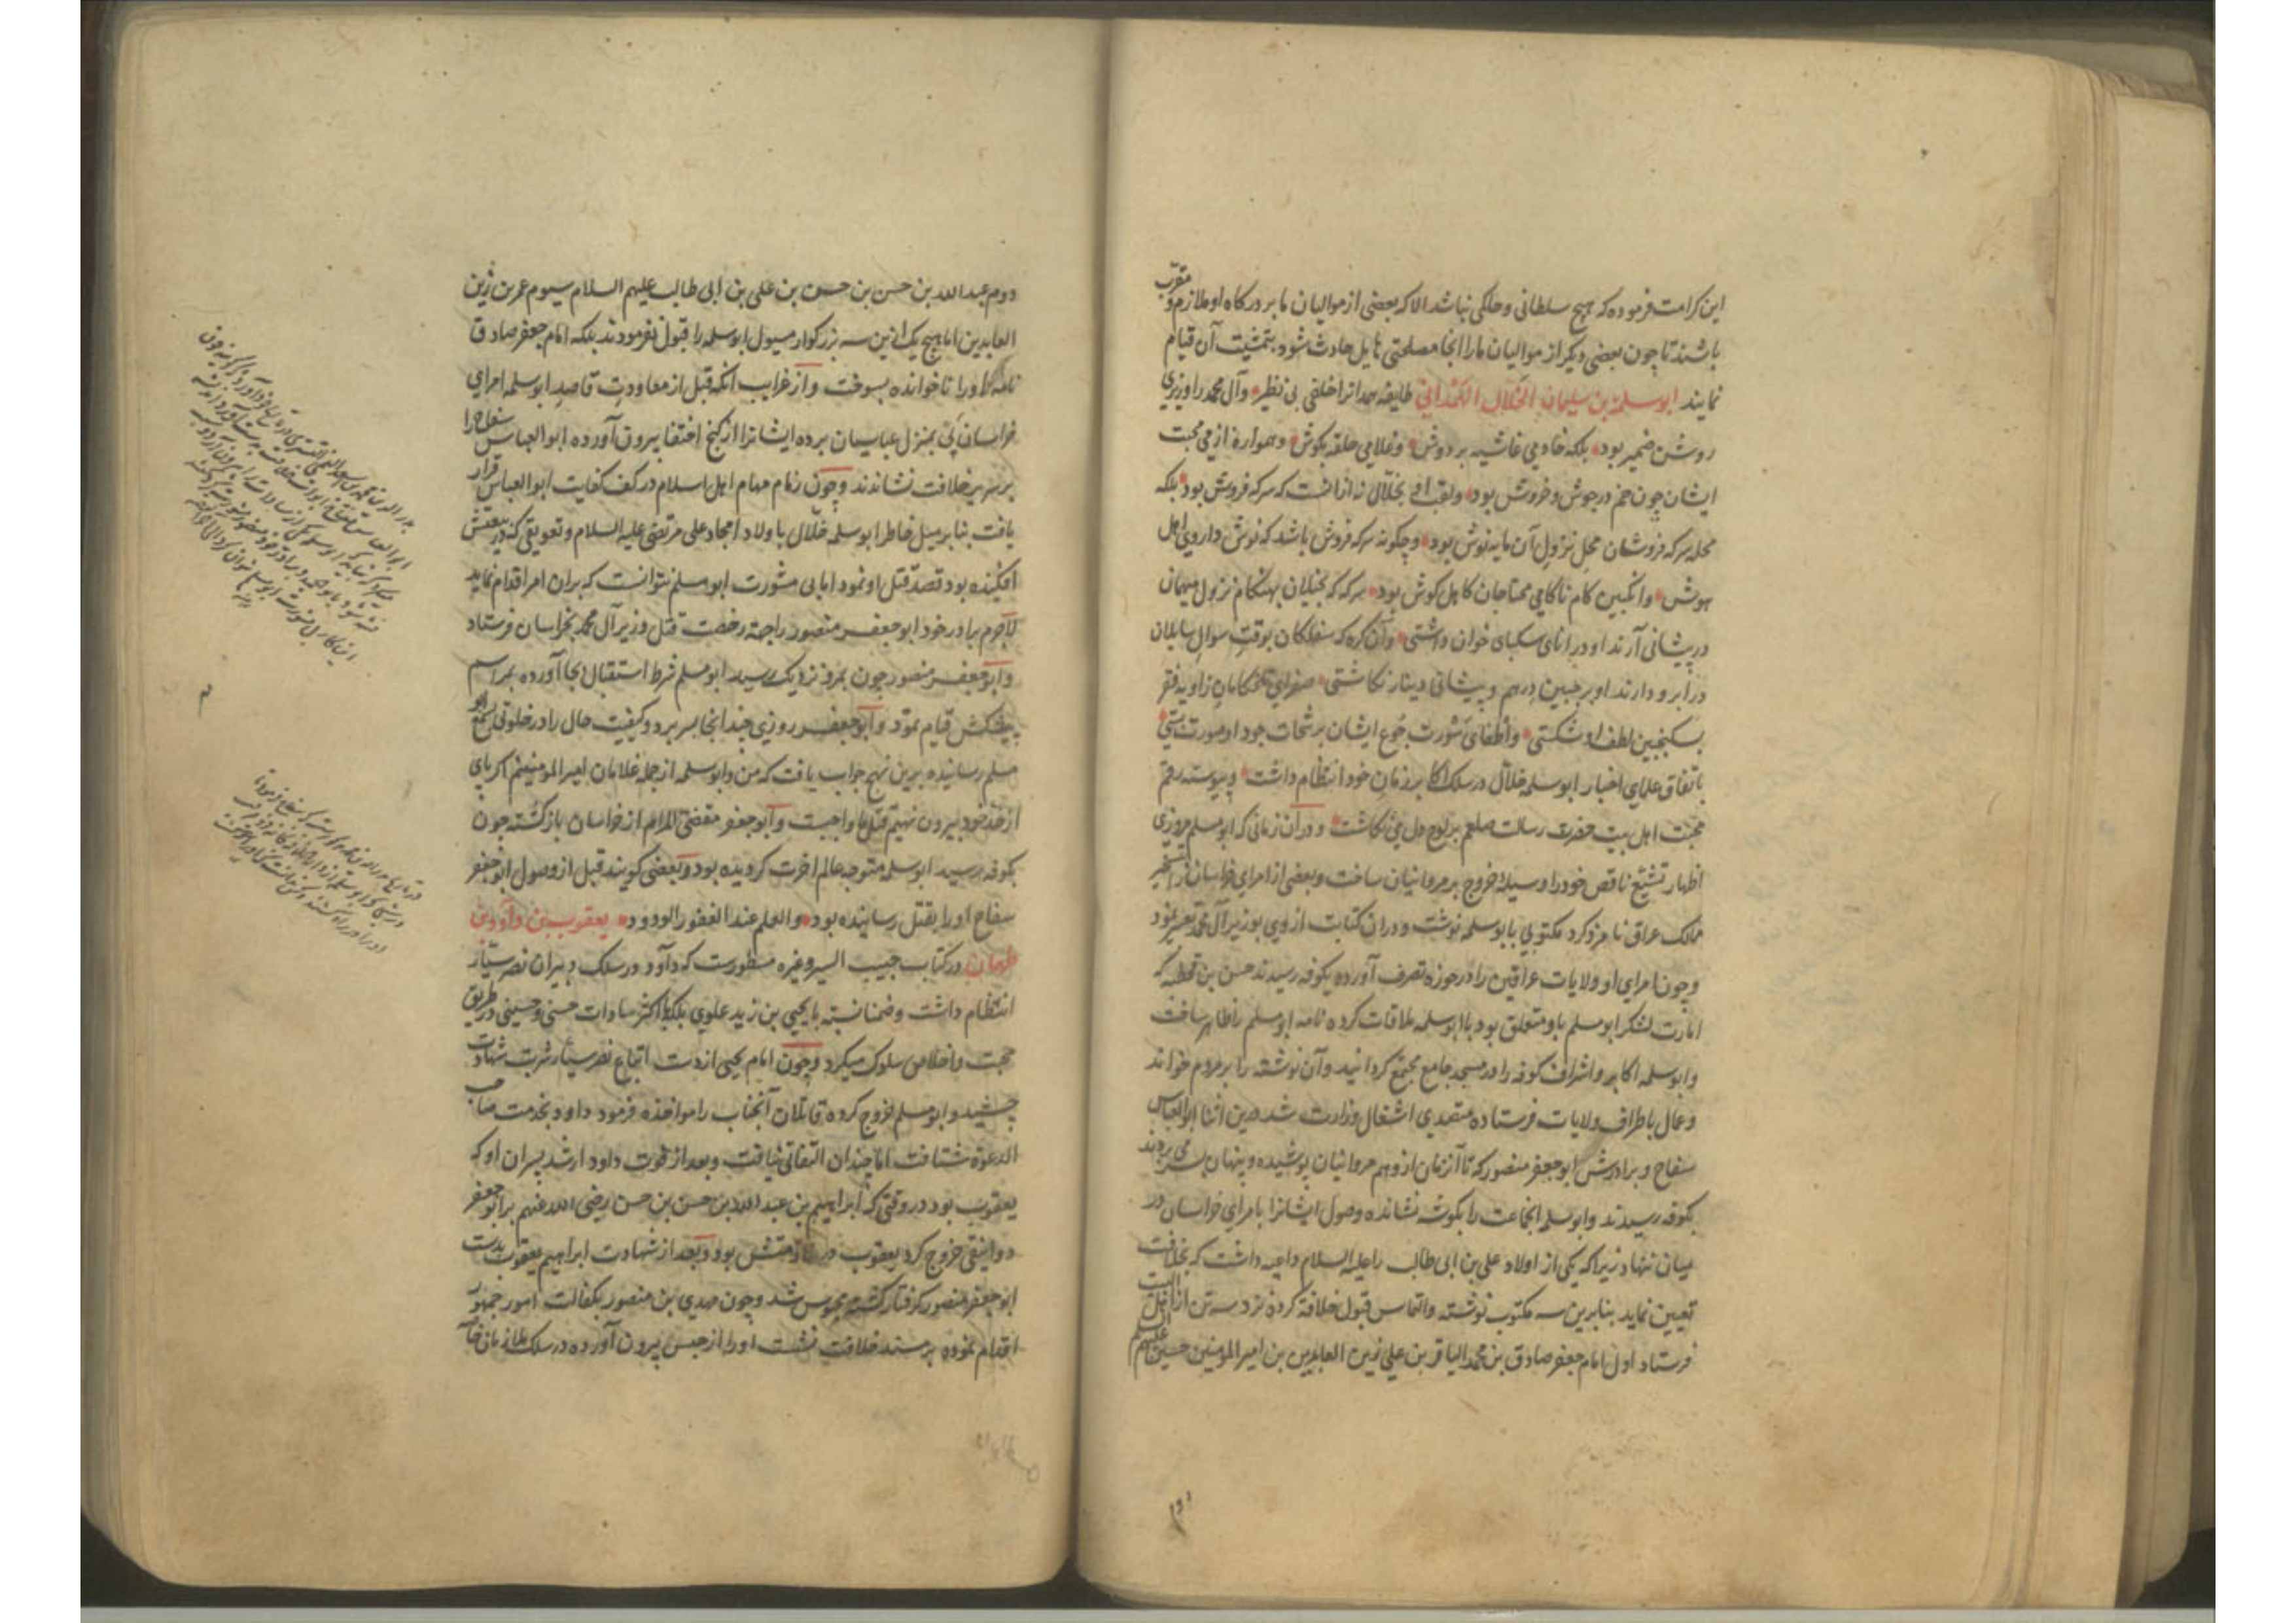 این کرامت فرموده که هیچ سلطانی و حاکمی نباشد الا که بعضی از موالیان ما بر درکاه او ملازم و مقرب
باشند تا چون بعضی دیکر از موالیان ما را انجا مصلحتی هایل حادث شود بتمشیت آن قیام
نمایند ابوسلمة بن سلیمان الخلال الهمدانی طایفه همدانرا خلفی بی نظیر و آل محمد را وزیری
روشن ضمیر بود بلکه خادمی غاشیه بر دوش و غلامی حلقه بکوش و همواره از می محبت
ایشان چون خم در جوش و خروش بود ولقب او بخلال نه از انست که سرکه فروش بود بلکه
محله سرکه فروشان محل نزول آن مایه نوش بود و چکونه سرکه فروش باشد که نوش داروی اهل
هوش و انکبین کام ناکامی محتاجان کاهل کوش بود سرکه که بخیلان بهنکام نزول میهمان
در پیشانی آرند او در انای سکبای خوان داشتی وآن کره که سفلکان بوقت سوال سایلان
در ابرو دارند او بر جبین درهم و پیشانی دینار نکاشتی صفرای تلخکامان زاویه فقر
بسکنجبین لطف او شکستی و اطفای شورت جوع ایشان برشحات جود او صورت بستی
باتفاق علمای اخبار ابوسلمه خلال در سلک اکابر زمان خود انتظام داشت و پیوسته رقم
محبت اهل بیت حضرت رسالت صلعم بر لوح دل می نکاشت و در آن زمانی که ابومسلم مروزی
اظهار تشیع ناقص خود را وسیله خروج بر مروانیان ساخت و بعضی از امرای خراسان را بتسخیر
ممالک عراق نامزد کرد مکتوبی بابوسلمه نوشت و در ان کتابت از وی بوزیر آل محمد تعبیر نمود
و چون امرای او ولایات عراقین را در حوزه تصرف آورده بکوفه رسیدند حسن بن قحطبه که
امارت لشکر ابومسلم باو متعلق بود با ابوسلمه ملاقات کرده نامه ابومسلم را ظاهر ساخت
وابوسلمه اکابر و اشراف کوفه را در مسجد جامع مجتمع کردانید وآن نوشته را بر مردم خواند
و عمال باطراف ولایات فرستاده متصدی اشغال وزارت شد درین اثنا ابوالعباس
سفاح و برادرش ابوجعفر منصور که تا آنزمان از وهم مروانیان پوشیده و پنهان بسر می بردند
بکوفه رسیدند وابوسلمه انجماعت را بکوشه نشانده وصول ایشانرا بامرای خراسان در
میان ننهاد زیرا که یکی از اولاد علی بن ابی طالب را علیه السلام داعیه داشت که بخلافت
تعیین نماید بنابرین سه مکتوب نوشته والتماس قبول خلافة کرده نزد سه تن از اهل البیت
فرستاد اول امام جعفر صادق بن محمد الباقر بن علی زین العابدین بن امیر المومنین حسین علیهم السلم
دوم عبد الله بن حسن بن حسن بن علی بن ابی طالب علیهم السلام سیوم عمر بن زین
العابدین اما هیچ یک ازین سه بزرکوار مسول ابوسلمه را قبول نفرمودند بلکه امام جعفر صادق
نامه او را ناخوانده بسوخت و از غرایب انکه قبل از معاودت قاصد ابوسلمه امرای
خراسان پی بمنزل عباسیان برده ایشانرا از کنج اختفا بیرون آورده ابوالعباس سفاح را
بر سریر خلافت نشاندند و چون زمام مهام اهل اسلام در کف کفایت ابوالعباس قرار
یافت بنا بر میل خاطر ابوسلمه خلال باولاد امجاد علی مرتضی علیه السلام و تعویقی که در بیعتش
افکنده بود قصد قتل او نمود اما بی مشورت ابومسلم نتوانست که بران امر اقدام نماید
لاجرم برادر خود ابوجعفر منصور را جهة رخصت قتل وزیر آل محمد بخراسان فرستاد
وابوجعفر منصور چون بمرو نزدیک رسید ابومسلم شرط استقبال بجا آورده بمراسم
پیشکش قیام نمود وابوجعفر روزی چند انجا بسر برد و کیفیت حال را در خلوتی بسمع ابو
مسلم رسانیده برین نهج جواب یافت که من وابوسلمه از جمله غلامان امیر المومنینیم اکر پای
از حد خود بیرون نهیم قتل ما واجبست وابوجعفر مقضی المرام از خراسان بازکشته چون
بکوفه رسید ابوسلمه متوجه عالم اخرت کردیده بود و بعضی کویند قبل از وصول ابوجعفر
سفاح او را بقتل رسانیده بود والعلم عند الغفور الودود یعقوب بن داود بن
طهمان در کتاب حبیب السیر وغیره مسطورست که داود در سلک دبیران نصر سیار
انتظام داشت و ضمنا نسبته با یحیی بن زید علوی بلکه با اکثر سادات حسنی و حسینی در طریق
محبت و اخلاص سلوک میکرد و چون امام یحیی از دست اتباع نصر سیار شربت شهادت
چشید و ابومسلم خروج کرده قاتلان آنجناب را مواخذه فرمود داود بخدمت صاحب
الدعوة شتافت اما چندان التفاتی نیافت و بعد از فوت داود ارشد پسران او که
یعقوب بود در وقتی که ابراهیم بن عبد الله بن حسن بن حسن رضی الله عنهم بر ابوجعفر
دوانیقی خروج کرد یعقوب در ملازمتش بود و بعد از شهادت ابراهیم یعقوب بدست
ابوجعفر منصور کرفتار کشته محبوس شد و چون مهدی بن منصور بکفالت امور جمهور
اقدام نموده بر مسند خلافت نشست او را از حبس بیرون آورده در سلک ملازمان خاصه